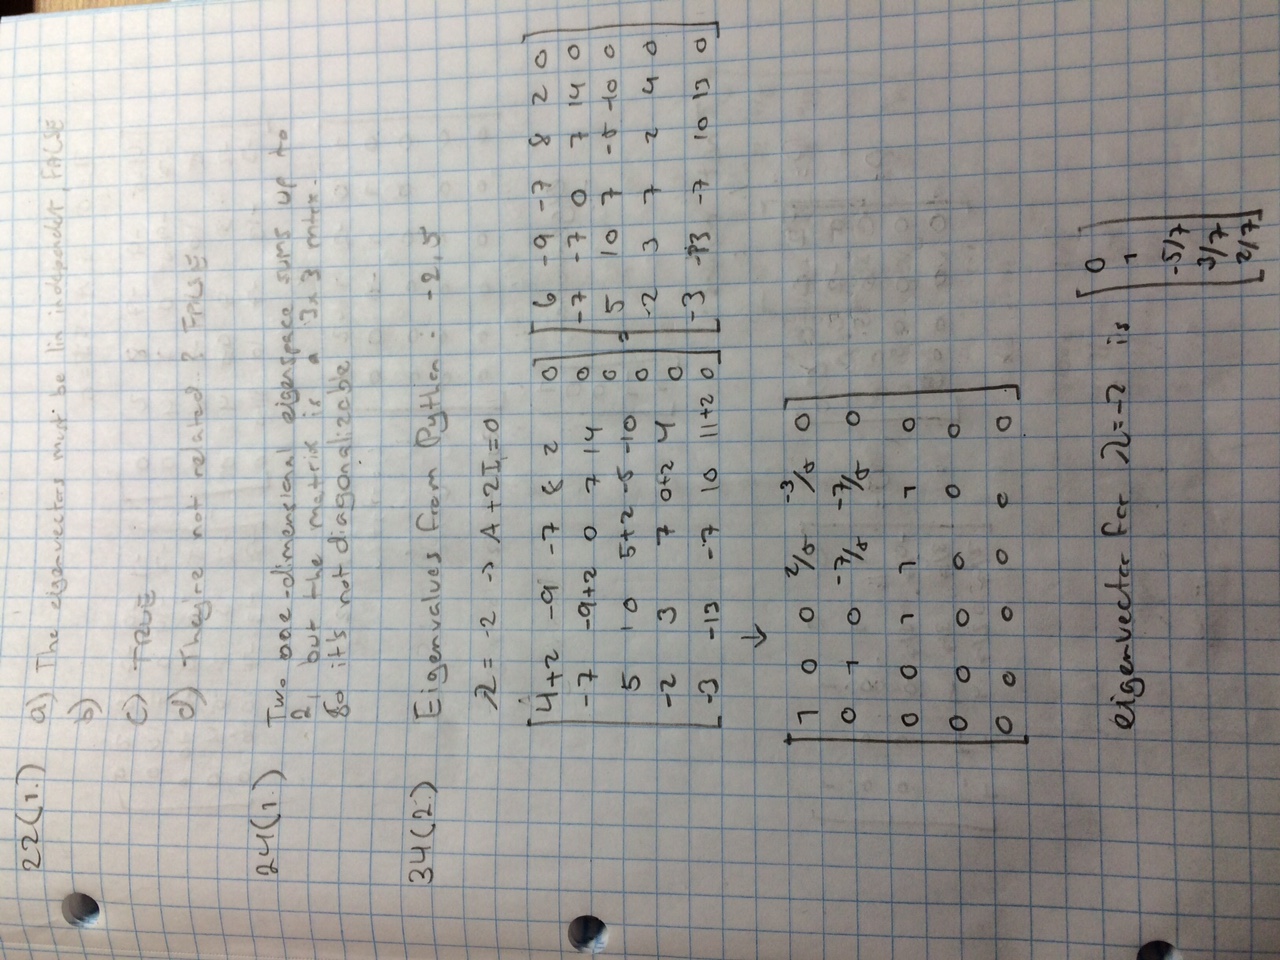 22(1.) a) The eigenvectors must be lin independet, FALSE
b)
c) TRUE
d) They're not related ? FALSE
24(1.) Two one-dimensional eigenspace sums up to
2, but the matrix is a 3x3 mtrx.
So it's not diagonalizable
34(2.) Eigenvalues from Python : -2, 5
λ = -2 -> A + 2I = 0
4+2 -9 -7 8 2 0 6 -9 -7 8 2 0
-7 -9+2 0 7 14 0 -7 -7 0 7 14 0
5 10 5+2 -5 -10 0 = 5 10 7 -5 -10 0
-2 3 7 0+2 4 0 -2 3 7 2 4 0
-3 -13 -7 10 11+2 0 -3 -13 -7 10 13 0
↓
1 0 0 2/5 -3/5 0
0 1 0 -7/5 -7/5 0
0 0 1 1 1 0
0 0 0 0 0 0
0 0 0 0 0 0
eigenvector for λ=-2 is
0
1
-5/7
3/7
2/7